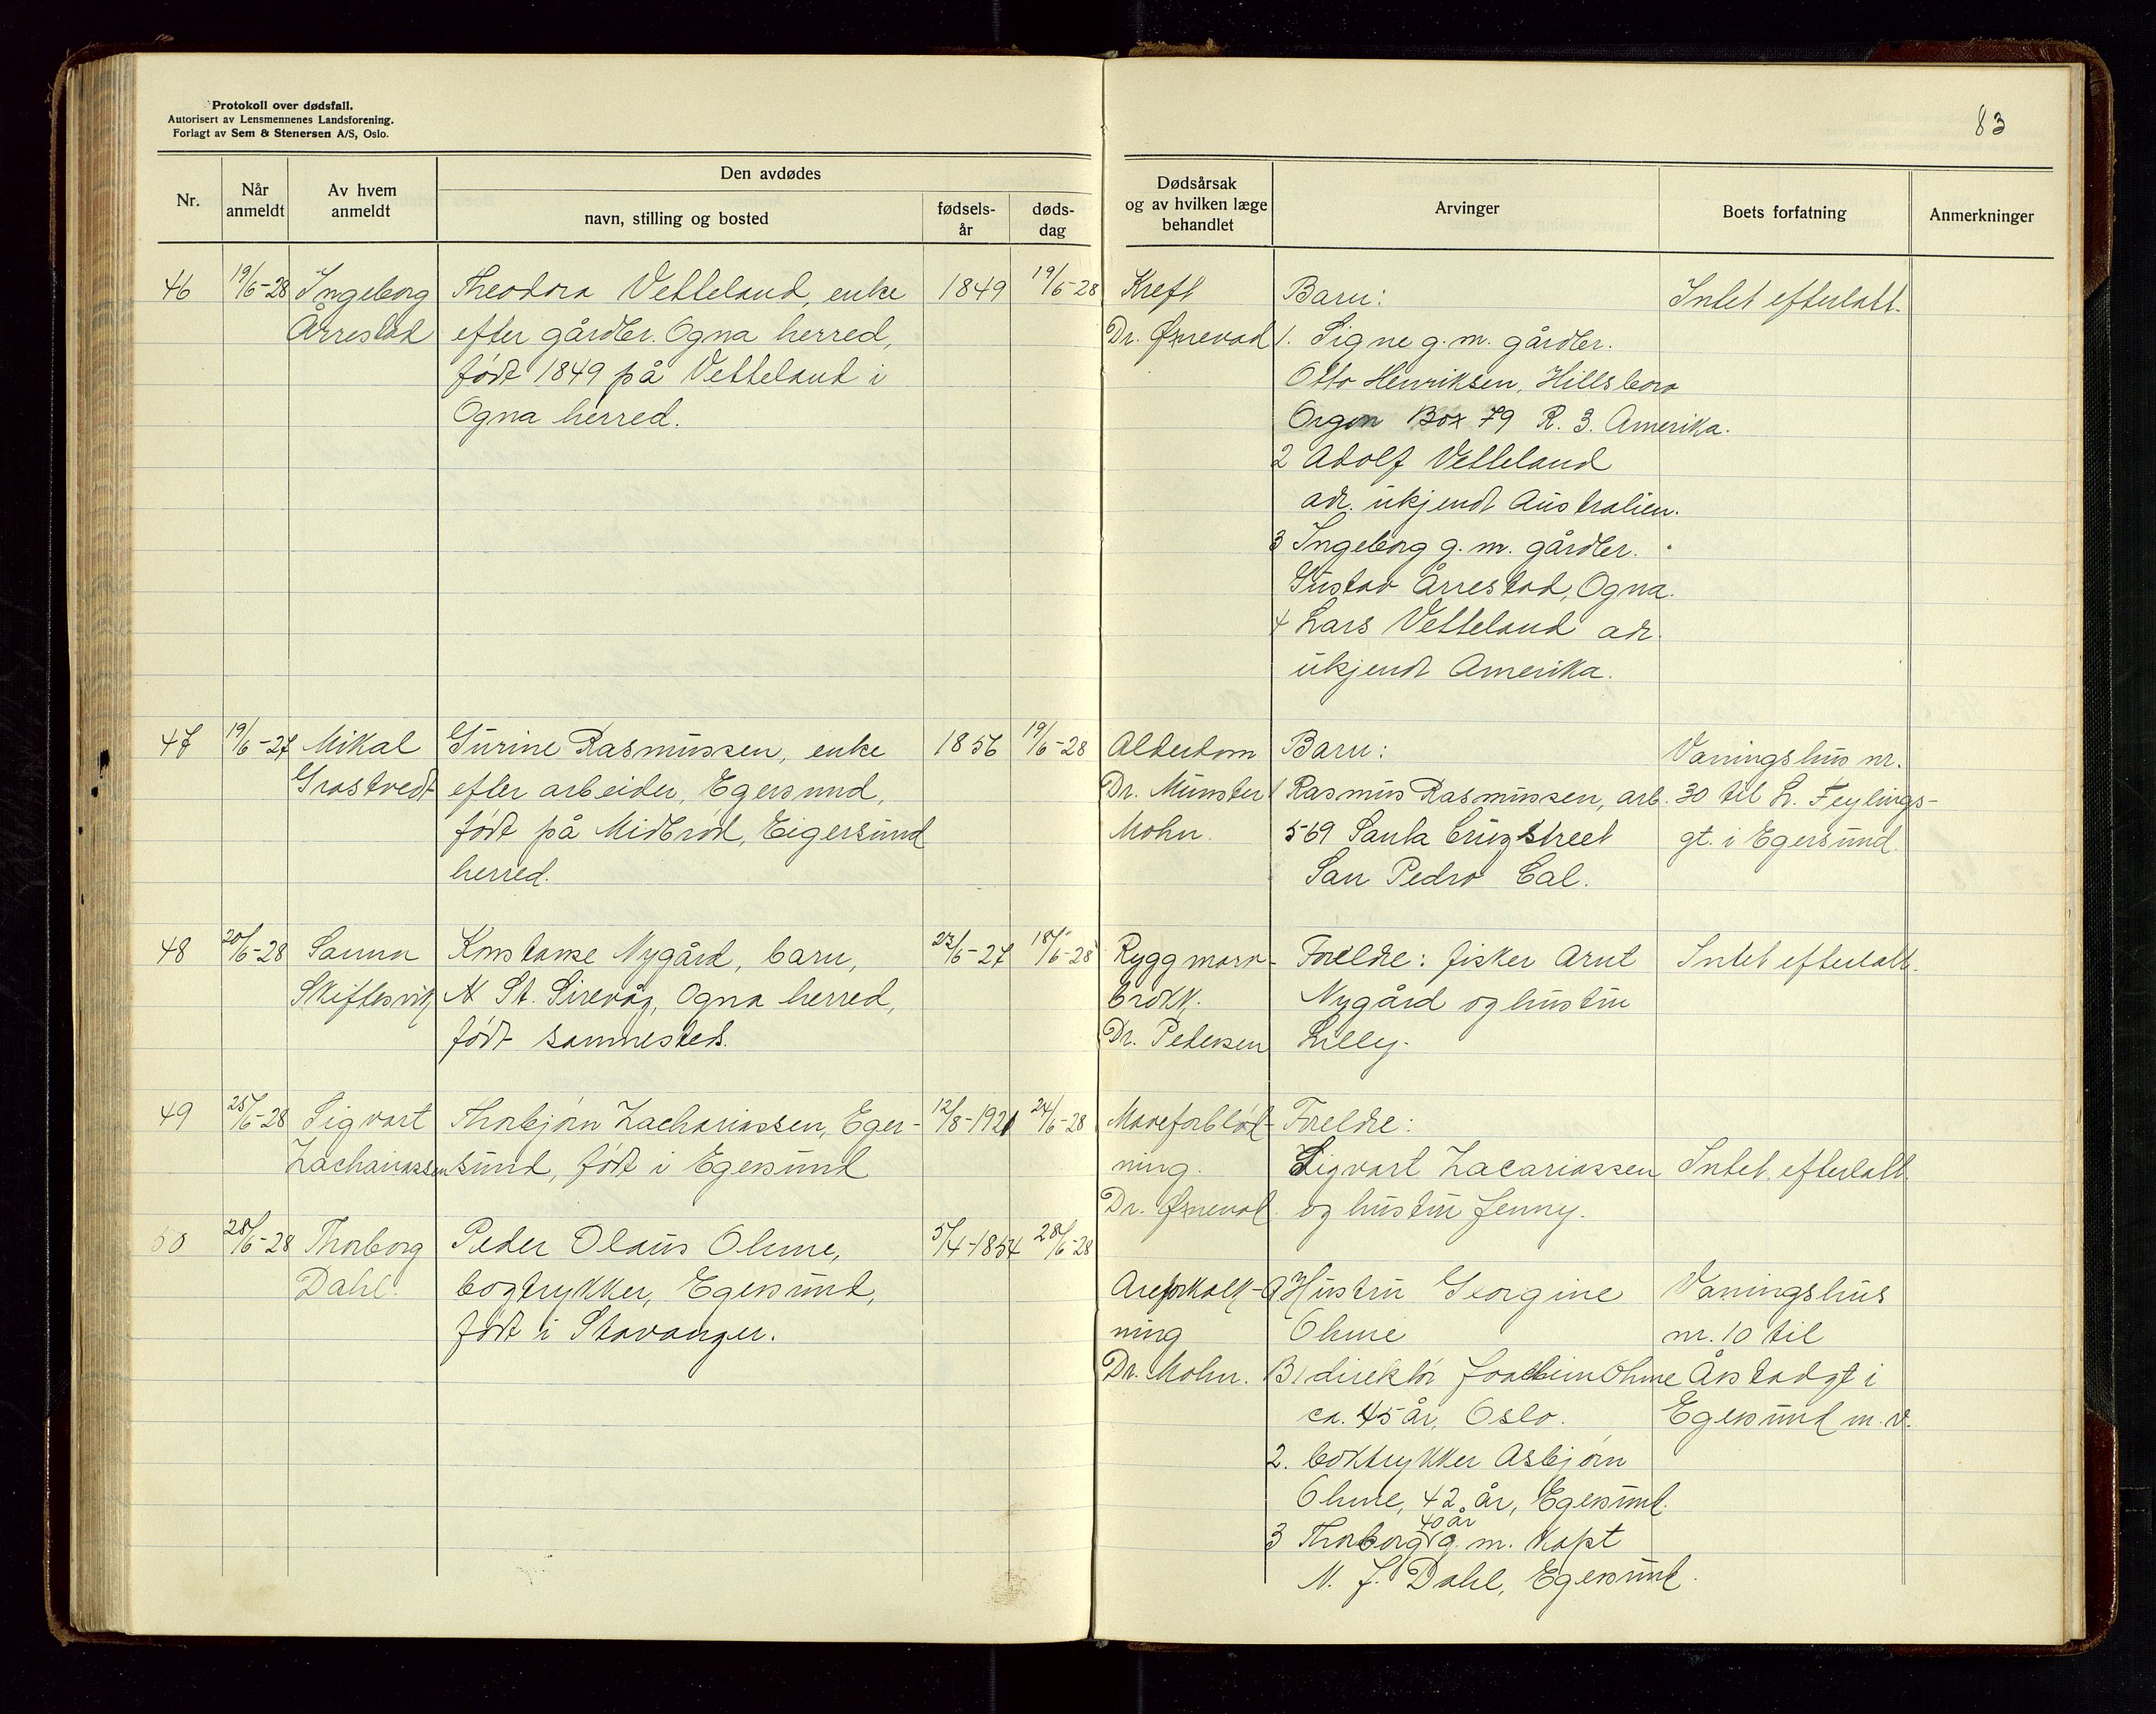 Protokoll over dødsfall.
Autorisert av Lensmennenes Landsforening.
Forlagt av Sem & Stenersen A/S, Oslo.
83
Nr.
Når
anmeldt
Av hvem
anmeldt
Den avdødes
navn, stilling og bosted
fødsels-
år
døds-
dag
Dødsårsak
og av hvilken læge
behandlet
Arvinger
Boets forfatning
Anmerkninger
46
19/6-28
Ingeborg
Årrestad
Theodora Vetteland, enke
efter gårdbr. Ogna herred,
født 1849 på Vetteland i
Ogna herred.
1849
19/6-28
Kreft
Dr. Øxnevad
Barn:
1. Signe g. m. gårdbr.
Otto Henriksen, Hillsboro
Orgon Box 79 R. 3. Amerika.
2 Adolf Vetteland
adr. ukjendt Australien.
3 Ingeborg g. m. gårdbr.
Gustav Årrestad, Ogna.
4 Lars Vetteland adr.
ukjendt Amerika.
Intet efterlatt.
47
19/6-27
Mikal
Grastvedt
Gurine Rasmussen, enke
efter arbeider, Egersund,
født på Midbrød, Eigersund
herred.
1856
19/6-28
Alderdom
Dr. Munster
Mohn.
Barn:
1 Rasmus Rasmussen, arb.
569 Santa Cruz street
San Pedro Cal.
Vaningshus nr.
30 til L. Feylings-
gt. i Egersund.
48
20/6-28
Sanna
Skiftesvik
Konstanse Nygård, barn,
N St. Sirevåg, Ogna herred,
født sammesteds.
22/6-27
18/6-28
Ryggmarv-
brokk.
Dr. Pedersen
Foreldre: fisker Arnt
Nygård og hustru
Lilly.
Intet efterlatt.
49
25/6-28
Sigvart
Zachariassen
Thorbjørn Zachariassen, Eger-
sund, født i Egersund
12/8-1921
24/6-28
Maveforblød-
ning.
Dr. Øxnevad.
Foreldre:
Sigvart Zacariassen
og hustru Jenny.
Intet efterlatt.
50
28/6-28
Thorborg
Dahl.
Peder Olaus Ohme,
bogtrykker, Egersund,
født i Stavanger.
5/4-1854
28/6-28
Areforkalk-
ning
Dr. Mohn.
A Hustru Georgine
Ohme
B1 direktør Joachim Ohme
ca. 45 år, Oslo.
2. boktrykker Asbjørn
Ohme, 42 år, Egersund.
40 år
3 Thorborg g. m. kapt
N. J. Dahl, Egersund.
Vaningshus
nr. 10 til
Årstadgt i
Egersund m. v.